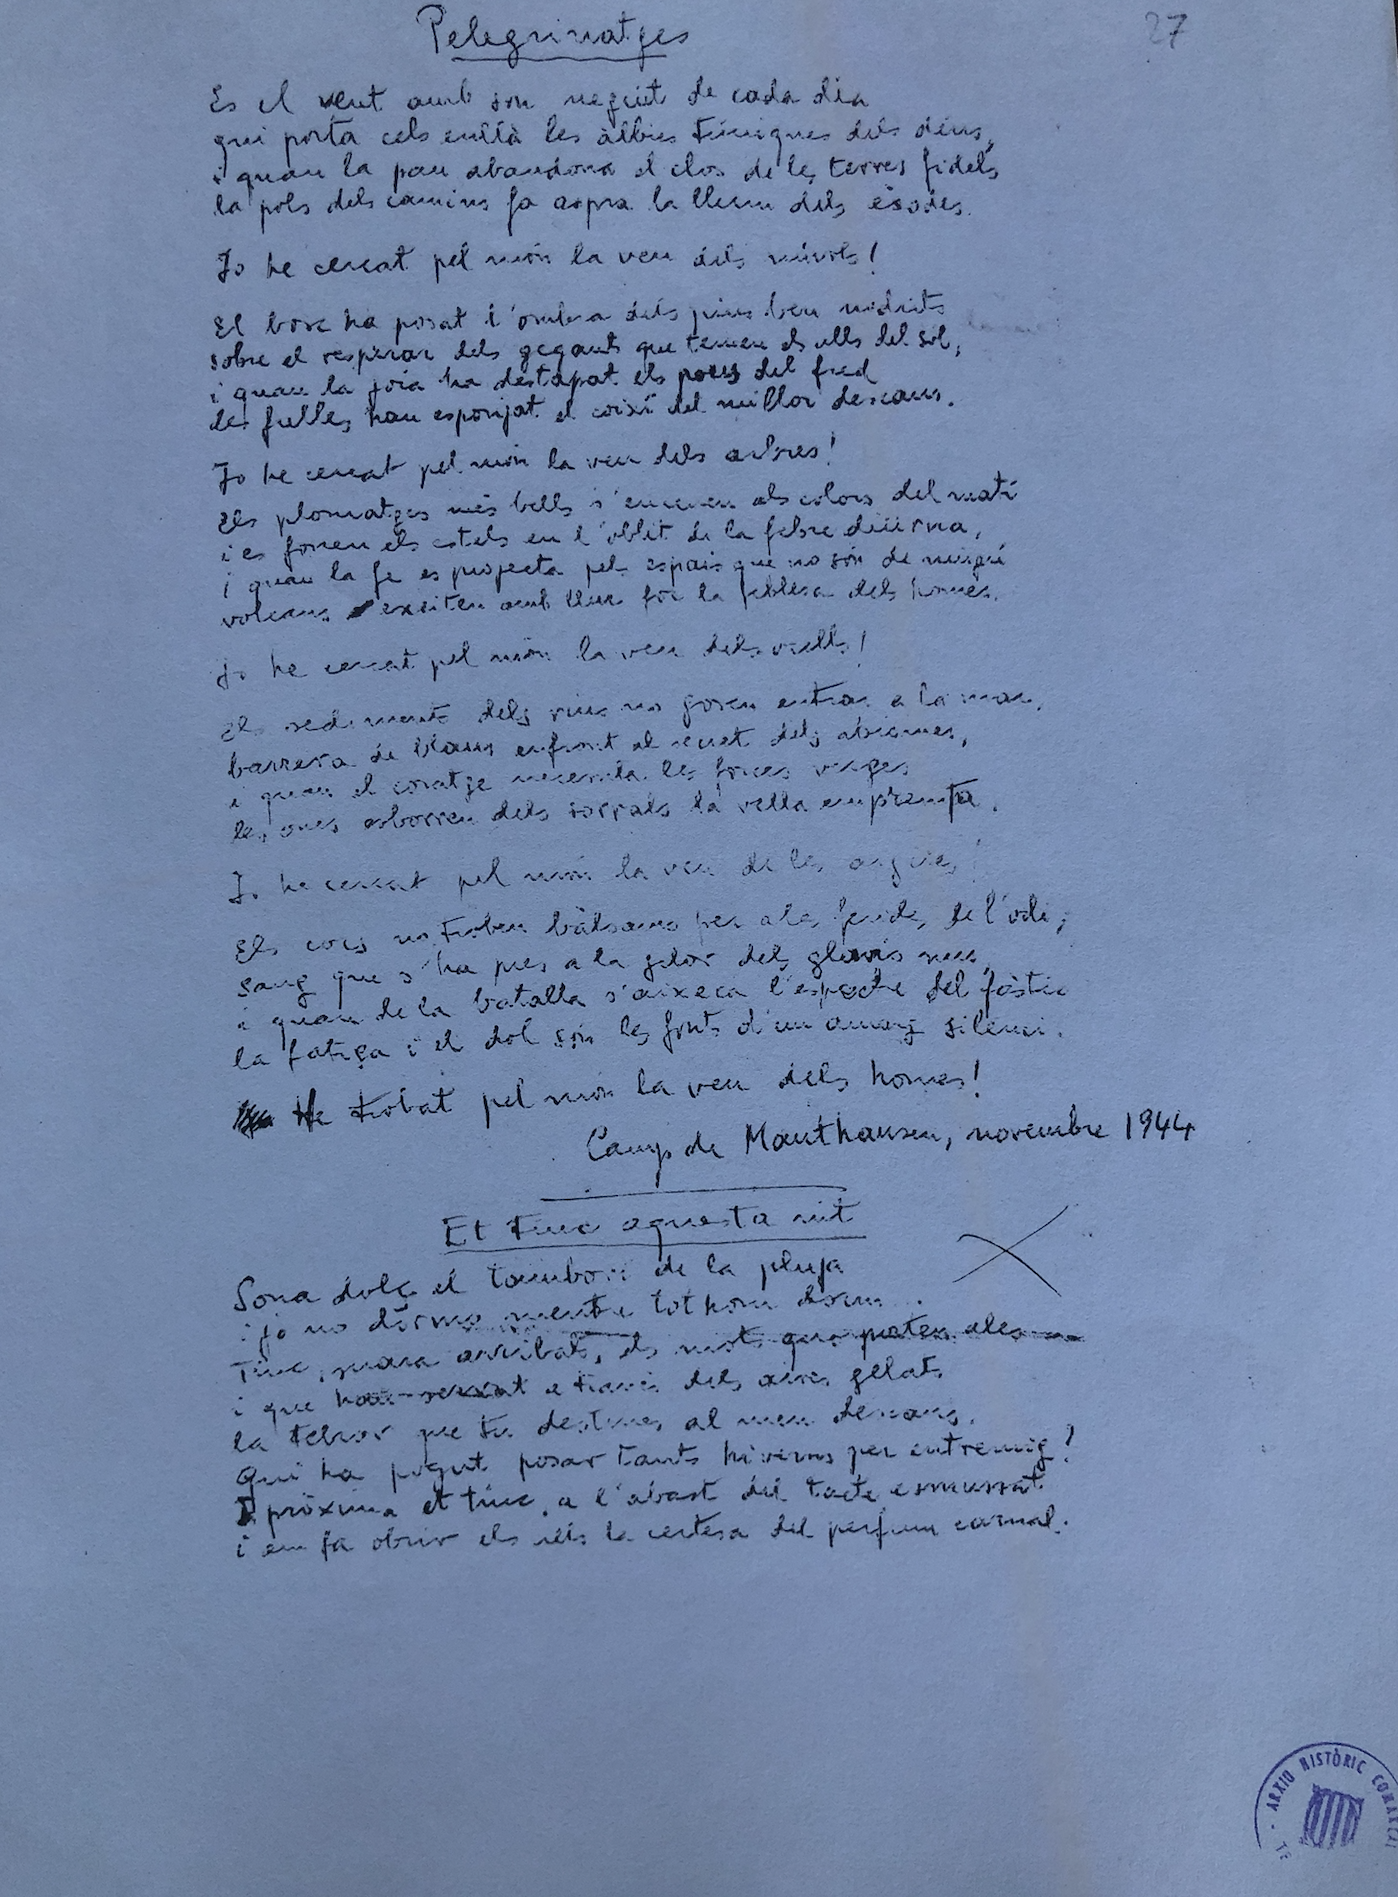 Pelegrinatges
27
Es el vent amb son neguit de cada dia
qui porta cels enllà les àlbies túniques dels déus,
i quan la pau abandona el clos de les terres fidels
la pols dels camins fa aspra la llum dels èxodes.
Jo he cercat pel món la veu dels núvols!
El bosc ha posat l'ombra dels pins ben nodrits
sobre el respirar dels gegants que temen els ulls del sol,
i quan la joia ha destapat els pous del fred
les fulles han esponjat el coixí del millor descans.
Jo he cercat pel món la veu dels arbres!
Els plomatges més bells s'encenen als colors del matí
i es fonen els estels en l'oblit de la febre diürna,
i quan la fe es projecta pels espais que no són de ningú
volcans exciten amb llur foc la feblesa dels homes.
Jo he cercat pel món la veu dels ocells!
Els sediments dels rius no gosen entrar a la mar,
barrera de blaus enfront al secret dels abismes,
i quan el coratge necessita les forces verges
les ones esborren dels sorrals la vella empremta.
Jo he cercat pel món la veu de les aigües!
Els cors no troben bàlsams per a les ferides de l'odi,
sang que s'ha pres a la gelor dels glavis nus,
i quan de la batalla s'aixeca l'espectre del fàstic
la fatiga i el dol són les fonts d'un amarg silenci.
He trobat pel món la veu dels homes!
Camp de Mauthausen, novembre 1944
Et tinc aquesta nit
Sona dolç el tamborí de la pluja
i jo no dormo mentre tothom dorm.
Tinc, suara arribats, els mots que porten ales
i que han servat a través dels aires gelats
la tebior que tu destines al meu descans.
Qui ha pogut posar tants hiverns per entremig?
pròxima et tinc, a l'abast del tacte esmussat
i em fa obrir els ulls la certesa del perfum carnal.
ARXIU HISTÒRIC COMARCAL
TE